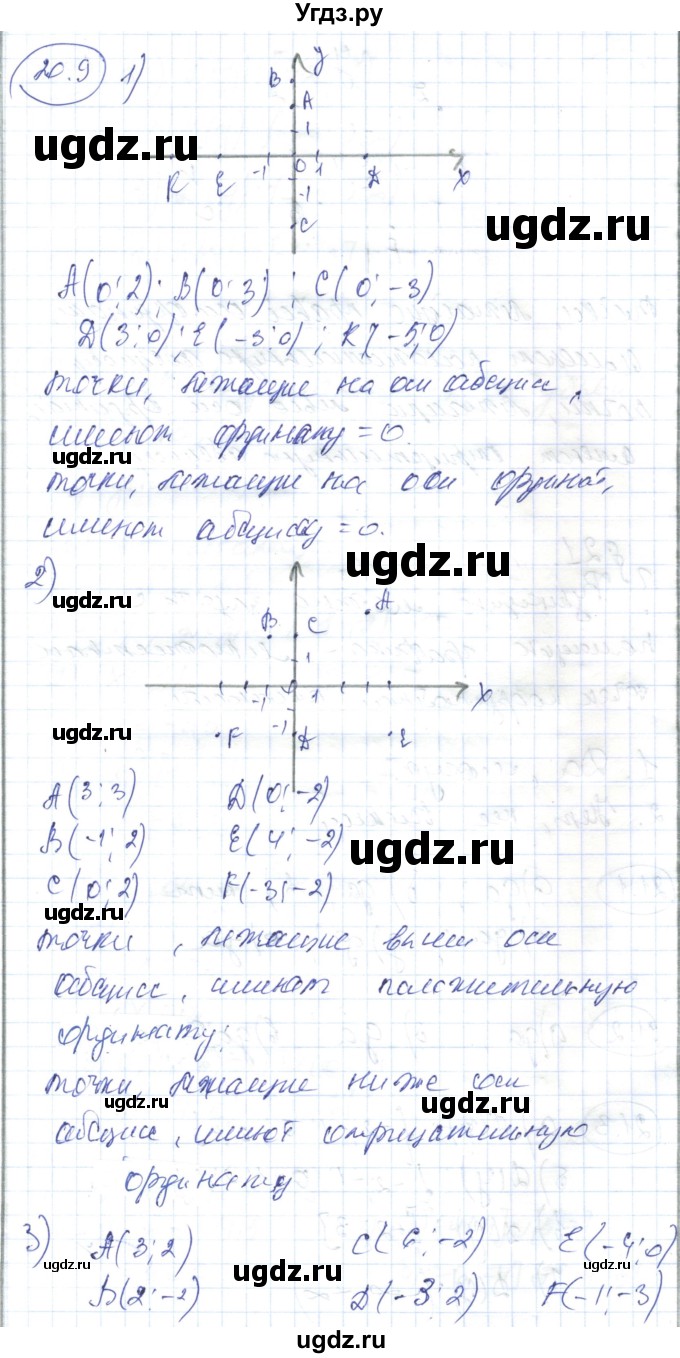 Угдз.ру
20.9 1)
y
B
A
1
ugdz.ru
K E -1 0 1 D x
-1
C
ugdz.ru
A(0;2); B(0;3); C(0;-3)
D(3;0); E(-3;0); K(-5;0)
точки, лежащие на оси абсцисс,
имеют ординату = 0.
ugdz.ru
точки, лежащие на оси ординат,
имеют абциссу = 0.
ugdz.ru
2)
ugdz.ru
A
B C
1
-1 1 x
ugdz.ru
F -1 D E
A(3;3) D(0;-2)
B(-1;2) E(4;-2)
ugdz.ru
C(0;2) F(-3;-2)
ugdz.ru
точки, лежащие выше оси
абсцисс, имеют положительную
ординату;
ugdz.ru
точки, лежащие ниже оси
ugdz.ru
ugdz.ru
абсцисс, имеют отрицательную
ординату
3) A(3;2) C(6;-2) E(-4;0)
ugdz.ru
ugdz.ru
ugdz.ru
B(2;-2) D(-3;2) F(-1;-3)
ugdz.ru